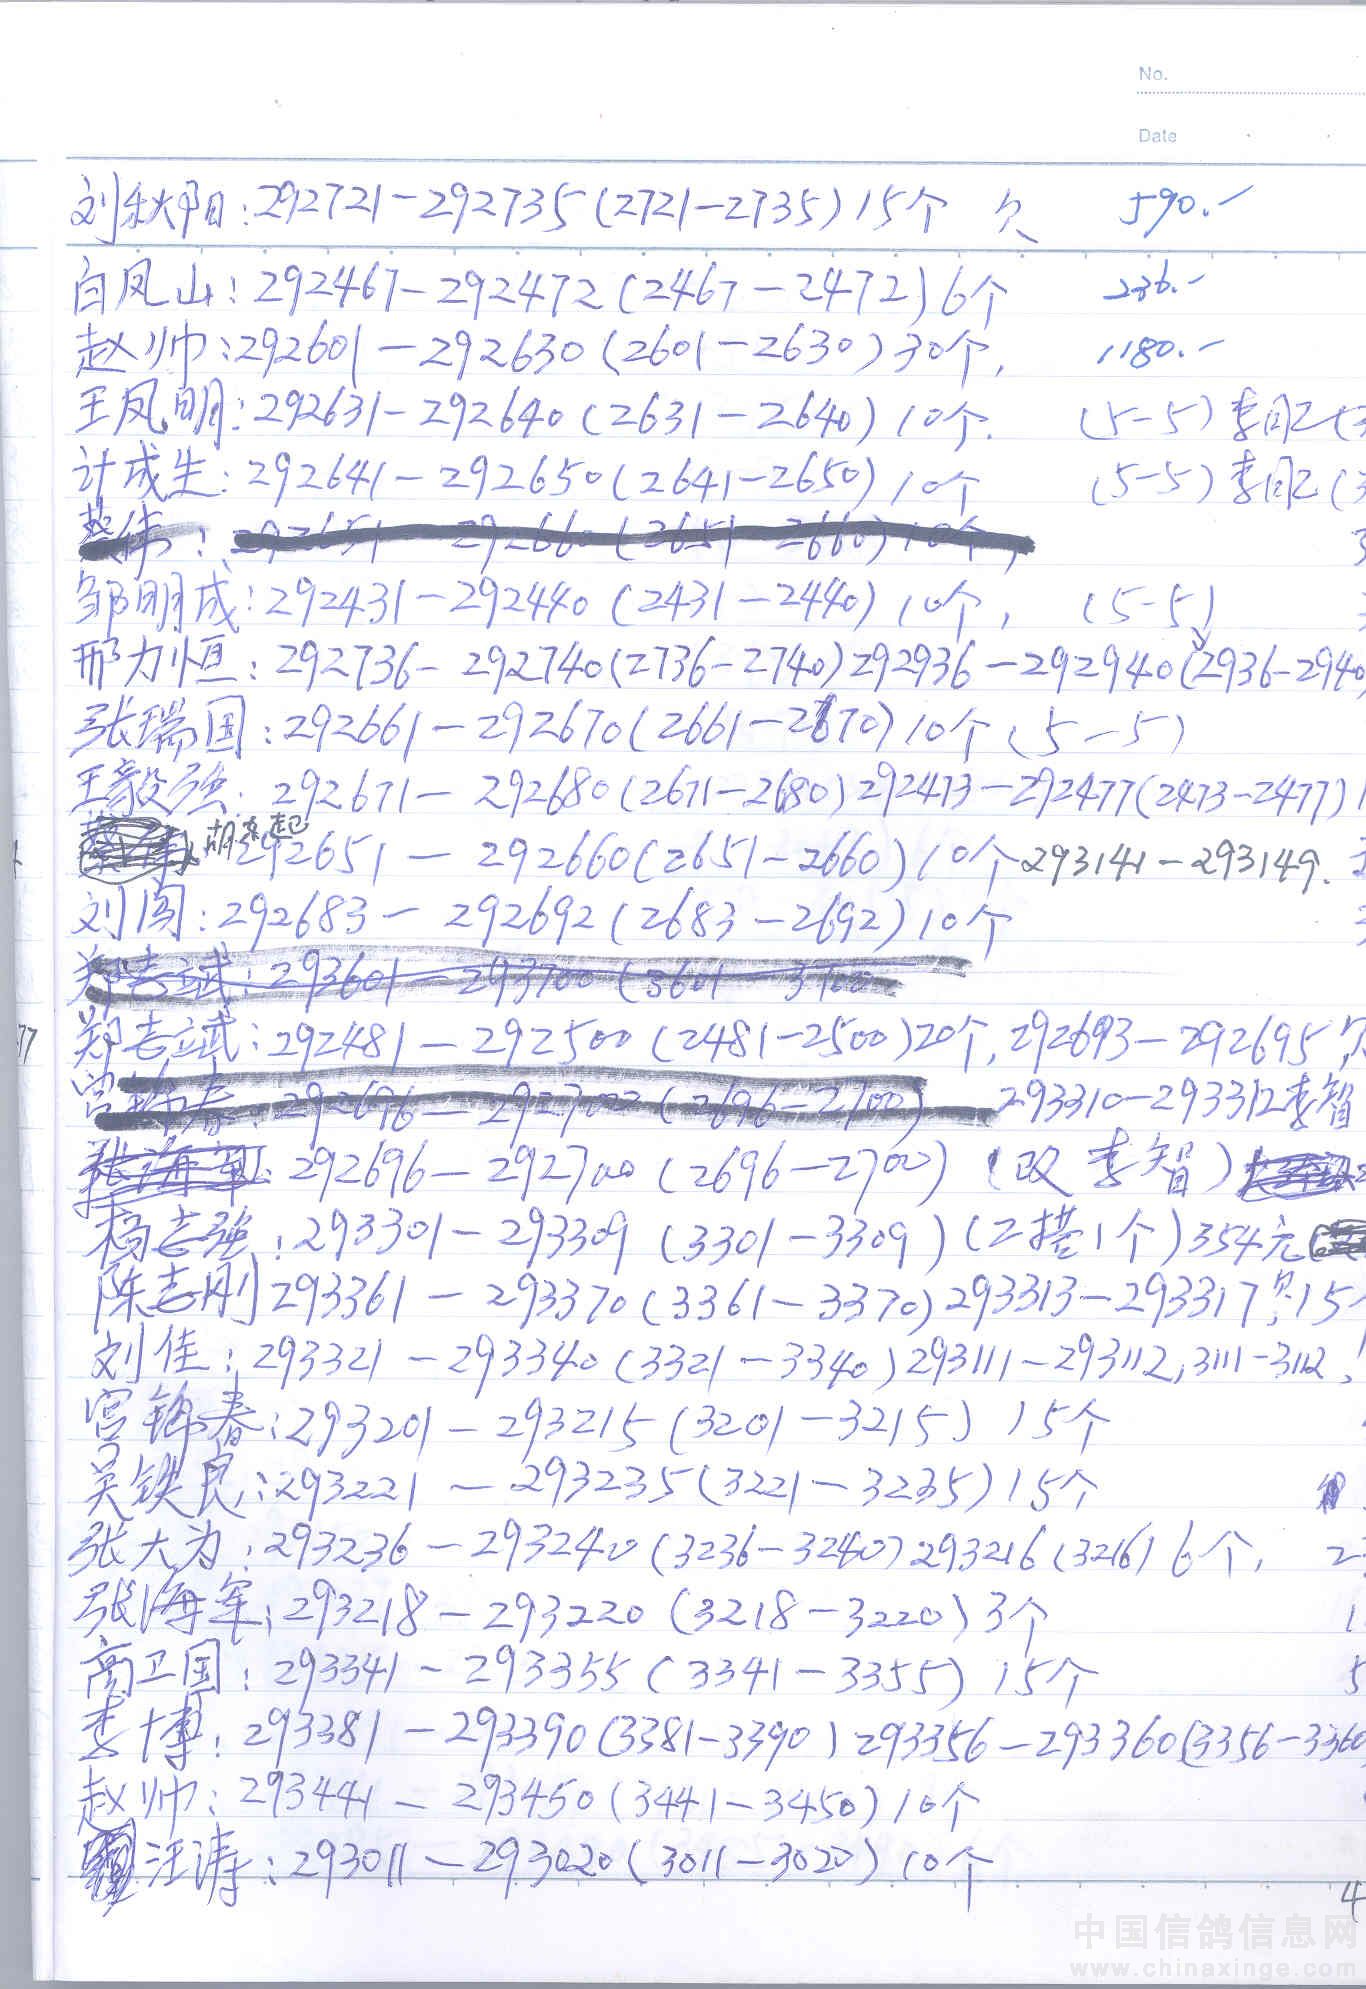 No.
Date
刘秋阳：292721－292735(2721－2735)15个 欠 590.－
白凤山：292467－292472(2467－2472)6个 236.－
赵帅：292601－292630(2601－2630)30个， 1180.－
王凤明：292631－292640(2631－2640)10个. (5-5)李
计成生：292641－292650(2641－2650)10个 (5-5)李
伟：292651 292660(2651 2660)10个，
邹明成：292431－292440(2431－2440)10个， (5-5)
邢力恒：292736－292740(2736－2740)292936－292940(2936－2940
张瑞国：292661－292670(2661－2670)10个(5－5)
王毅强：292671－292680(2671－2680)292473－292477(2473－2477)
292651－292660(2651－2660)10个293141－293149.
刘阁：292683－292692(2683－2692)10个
郑志斌：293601－293700(3601 3700
郑志斌：292481－292500(2481－2500)20个，292693－292695，
宫锦春：292696－292700(2696－2700) 293310－293312李智
张海军：292696－292700(2696－2700)(改李智)
杨志强：293301－293309(3301－3309)(2搭1个)354元
陈志刚293361－293370(3361－3370)293313－293317，15
刘佳：293321－293340(3321－3340)293111－293112，3111－3112，
宫锦春：293201－293215(3201－3215)15个
吴铁良：293221－293235(3221－3235)15个
张大为：293236－293240(3236－3240)293216(3216)6个，
张海军：293218－293220(3218－3220)3个
商卫国：293341－293355(3341－3355)15个
李博：293381－293390(3381－3390)293356－293360(3356－3360
赵帅：293441－293450(3441－3450)10个
汪涛：293011－293020(3011－3020)10个
中国信鸽信息网
www.chinaxinge.com